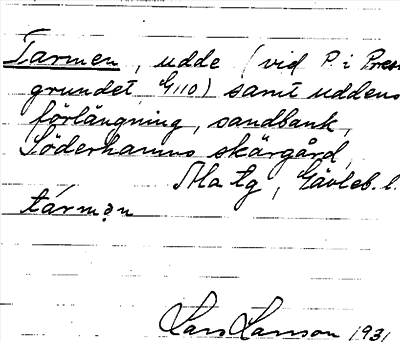 Tarmen, udde (vid P. i Pres
grundet, G110) samt uddens
förlängning, sandbank,
Söderhamns skärgård,
Ala tg, Gävleb. l.
tármən
Lars Larsson 1931